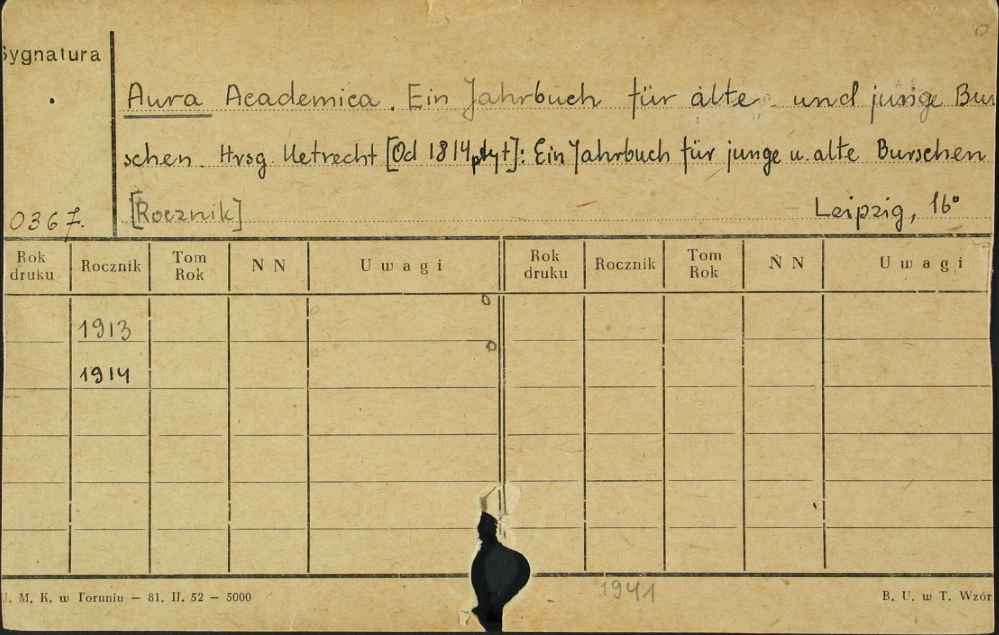 Sygnatura
Aura Academica. Ein Jahrbuch für alte und junge Bur
schen. Hrsg. Uetrecht [Od 1814 ptyt]: Ein Jahrbuch für junge u. alte Burschen
0367. [Rocznik] Leipzig, 16°
Rok druku Rocznik Tom Rok N N Uwagi Rok druku Rocznik Tom Rok N N Uwagi
1913
1914
1941
U. M. K. w Toruniu — 81. II. 52 — 5000 B. U. w T. Wzór